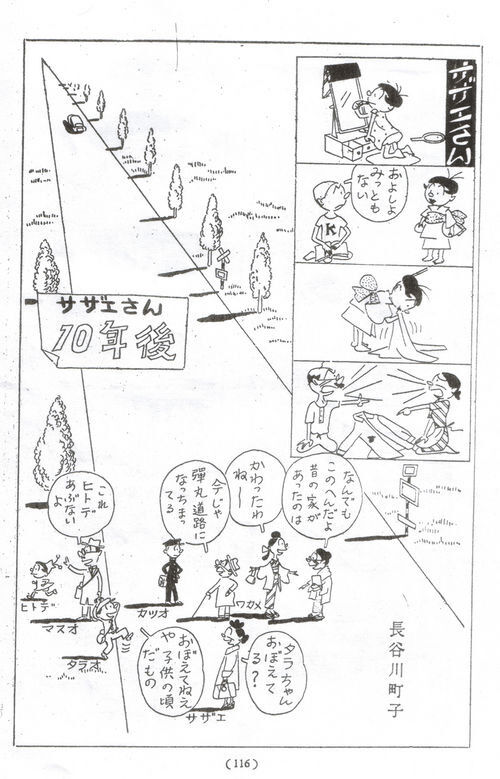 サザエさん
およしよ
みっとも
ない
K
サザエさん
10年後
なんでも
このへんだよ
昔の家が
あったのは
かわったわ
ねー
今じゃ
彈丸道路に
なっちまっ
てる
これ
ヒトデ
あぶない
よ
ヒトデ
マスオ
タラオ
カツオ
ワカメ
タラちゃん
おぼえて
る?
おぼえてねえ
や子供の頃
だもの
サザエ
長谷川町子
(116)